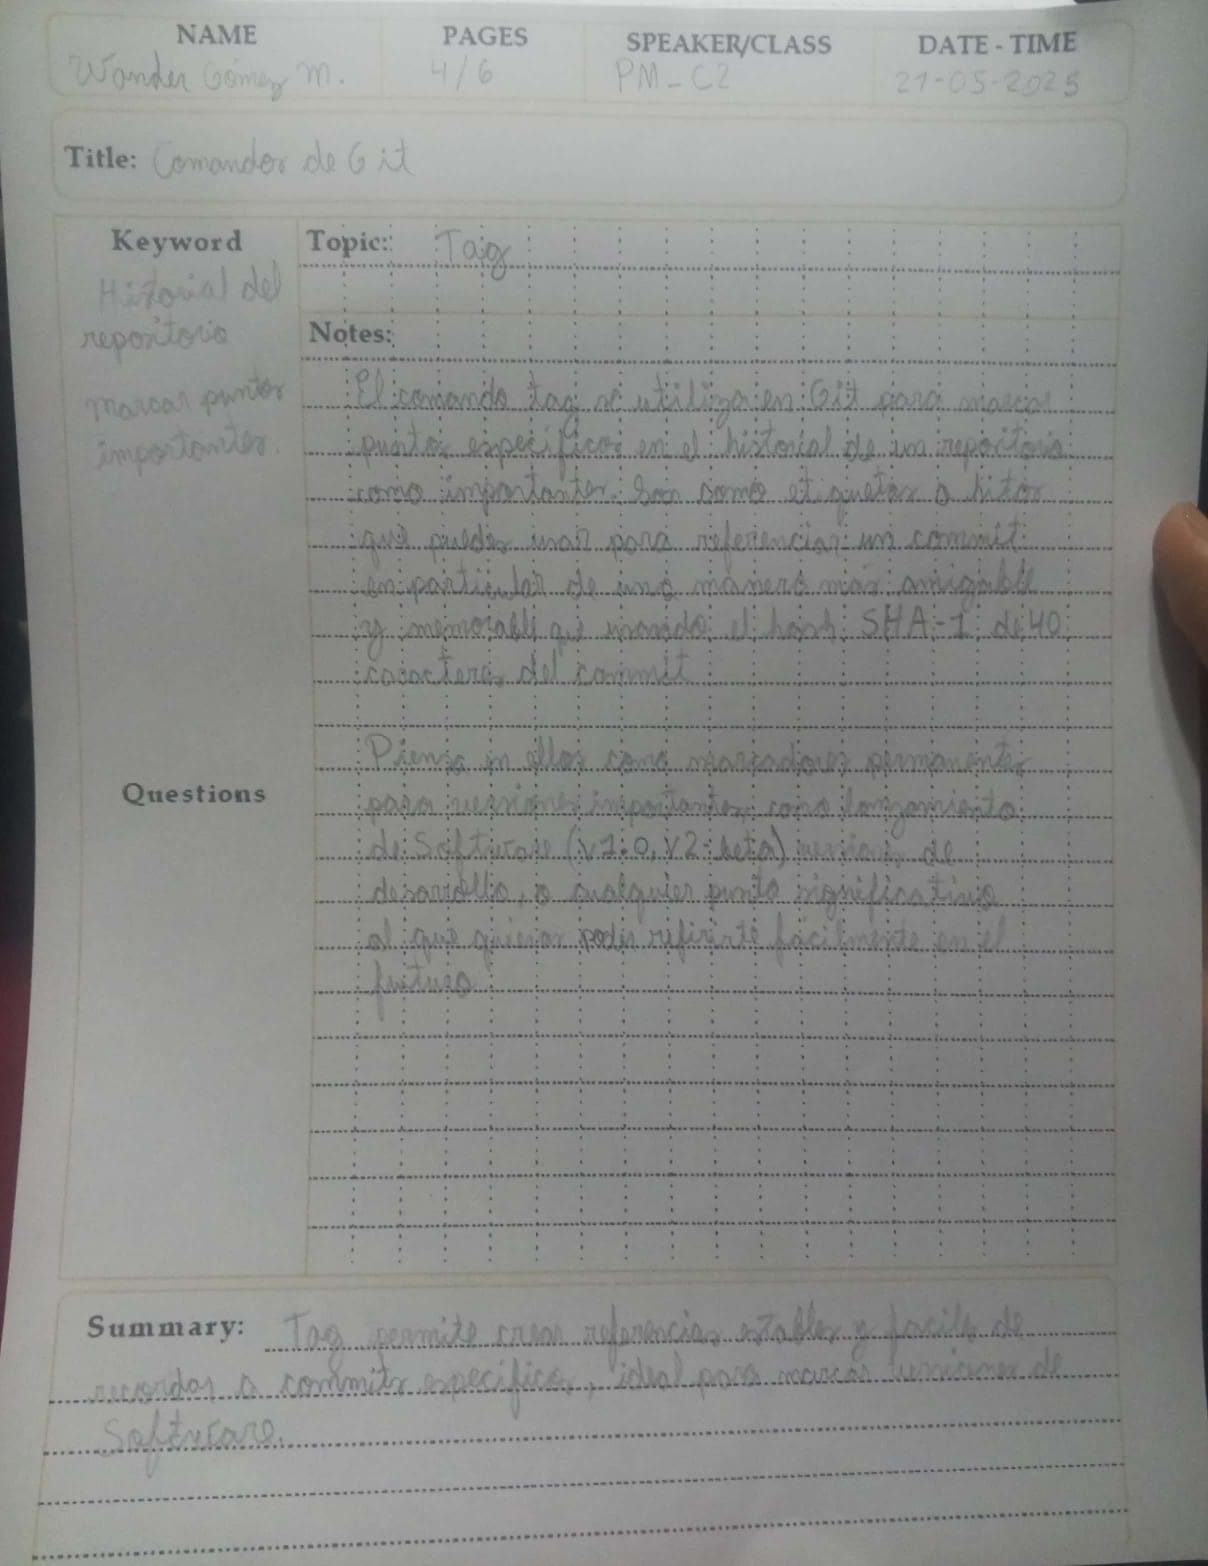 NAME PAGES SPEAKER/CLASS DATE - TIME
Wander Gómez M. 4/6 PM-C2 21-05-2025
Title: Comandos de Git
Keyword
Historial del
repositorio
marcar puntos
importantes.
Questions
Topic: Tag
Notes:
El comando tag se utiliza en Git para marcar
puntos específicos en el historial de un repositorio
como importantes. Son como etiquetas o hitos
que puedes usar para referenciar un commit
en particular de una manera más amigable
y memorable que usando el hash SHA-1 de 40
caracteres del commit
Piensa en ellos como marcadores permanentes
para versiones importantes como lanzamiento
de Software (v1.0, v2-beta) versiones de
desarrollo, o cualquier punto significativo
al que quieras poder referirte fácilmente en el
futuro
Summary: Tag permite crear referencias estables y faciles de
recordar a commits especificos, ideal para marcar versiones de
Software.